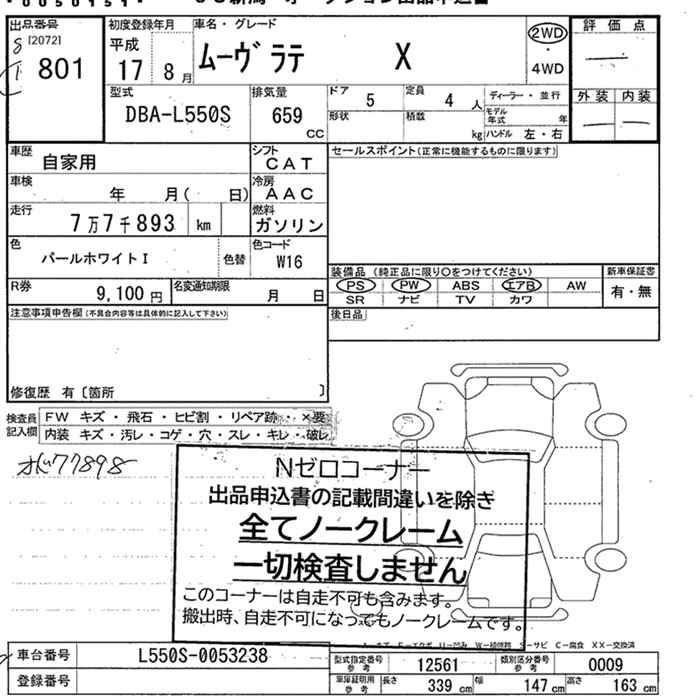 出品番号
[2072]
801
初度登録年月
平成
17 8月
車名・グレード
ムーヴ ラテ X
2WD
・
4WD
評価点
外装 内装
型式
DBA-L550S
排気量
659
CC
ドア 5
定員 4 人
形状
積載 kg
ディーラー・並行
モデル年式 年
ハンドル 左・右
車歴
自家用
シフト
CAT
セールスポイント(正常に機能するものに限ります)
車検
年 月( 日)
冷房
AAC
走行
7万7千893 km
燃料
ガソリン
色
パールホワイトI
色替
色コード
W16
装備品 (純正品に限り○をつけてください)
新車保証書
PS PW ABS エアB AW
有・無
SR ナビ TV カワ
R券
9,100円
名変通知期限
月 日
後日品
注意事項申告欄(不具合内容等は具体的に記入して下さい)
修復歴 有〔箇所 〕
検査員
記入欄
FW キズ・飛石・ヒビ割・リペア跡・×要
内装 キズ・汚レ・コゲ・穴・スレ・キレ・破レ
77898
Nゼロコーナー
出品申込書の記載間違いを除き
全てノークレーム
一切検査しません
このコーナーは自走不可も含みます。
搬出時、自走不可になってもノークレームです。
車台番号
L550S-0053238
登録番号
型式指定番号
参考
12561
類別区分番号
参考
0009
車庫証明用
参考
長さ 339 cm
幅 147 cm
高さ 163 cm